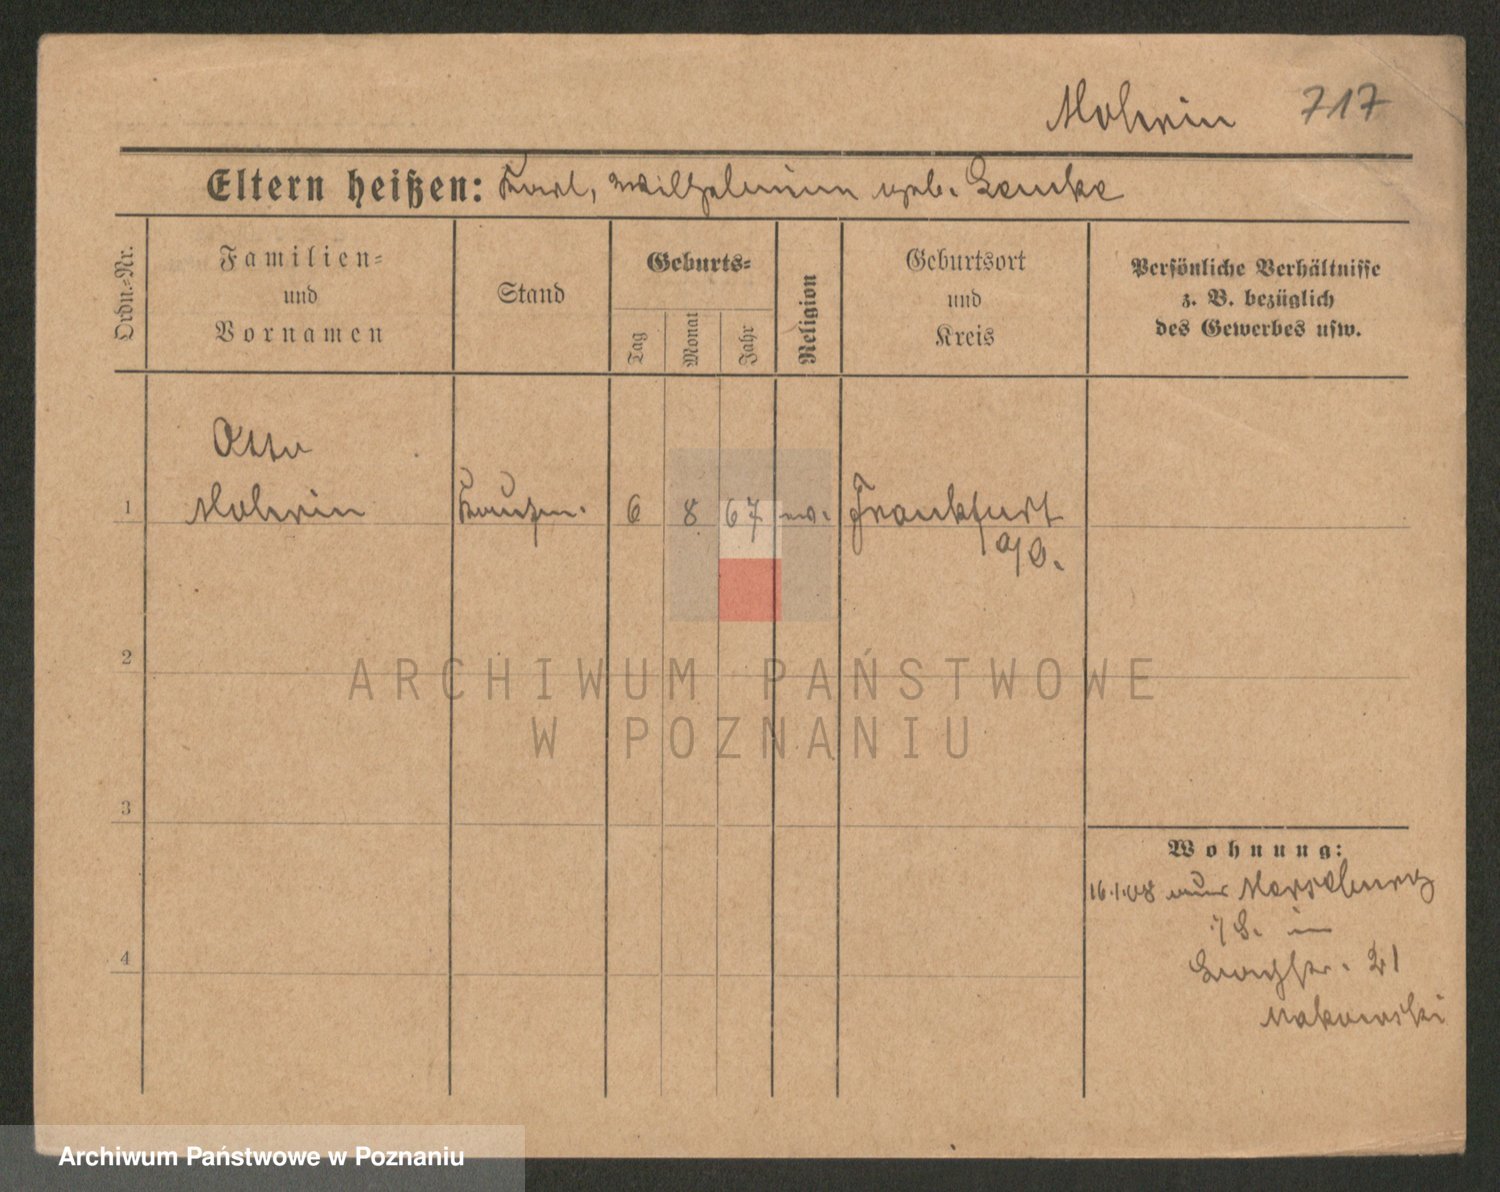 Mohrin 717
Eltern heißen: Karl, Wilhelmine geb. Lemke
Ordn.-Nr.
Familien-
und
Vornamen
Stand
Geburts-
Tag
Monat
Jahr
Religion
Geburtsort
und
Kreis
Persönliche Verhältnisse
z. B. bezüglich
des Gewerbes usw.
Otto
1 Mohrin Kaufm. 6 8 67 ev. Frankfurt
a/O.
2
3
4
Wohnung:
16.1.08 von Merseburg
/S. in
21
Makowski
ARCHIWUM PAŃSTWOWE
W POZNANIU
Archiwum Państwowe w Poznaniu